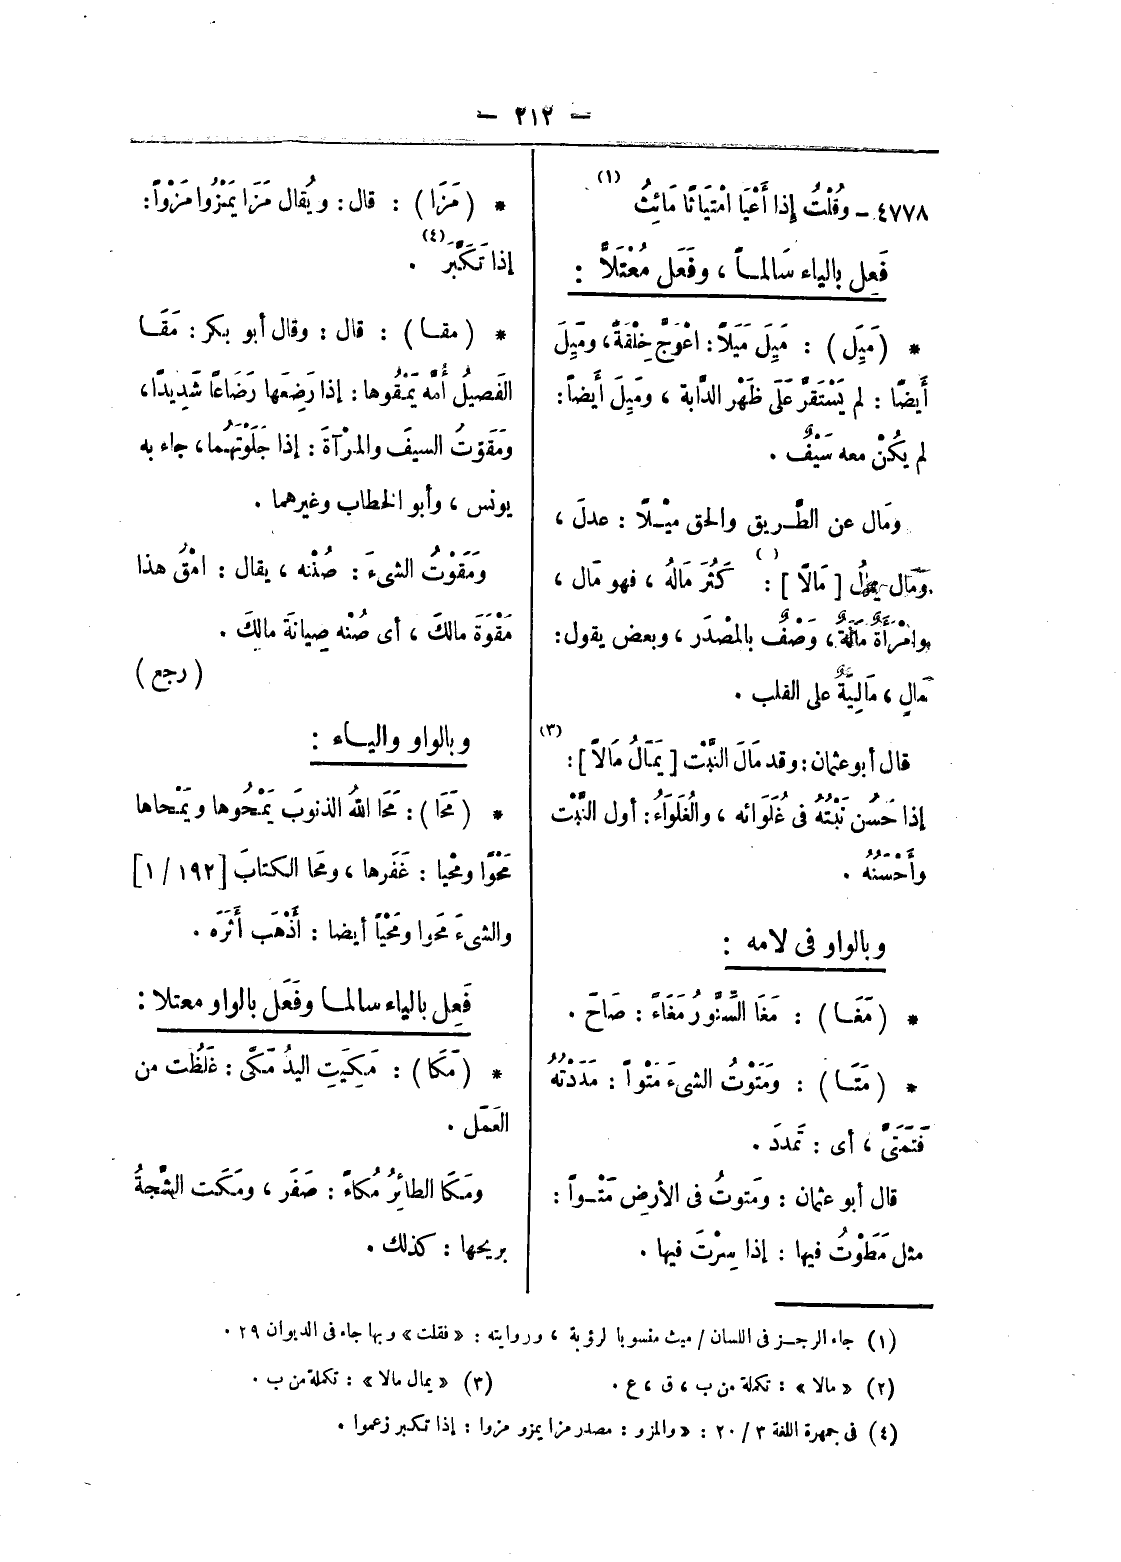 - ٢١٢ -
٤٧٧٨ - وقُلْتُ إِذا أَعْيَا امْتِيَاثًا مَائِثُ (١)
فَعِل بالياء سَالماً ، وفَعَل مُعْتَلاًّ :
* (مَيِل) : مَيِلَ مَيَلاً: اعْوَجَّ خِلْقَةً، ومَيِلَ
أَيضًا : لم يَسْتَقرَّ عَلَى ظَهْر الدَّابة ، ومَيِلَ أَيضاً:
لم يكُنْ معه سَيْفٌ .
ومَال عن الطَّريق والحق ميْلاً : عدلَ ،
ومَال يمالُ [ مَالًا ] ( ) : كَثُرَ مَالهُ ، فهو مَال ،
وامْرَأَةٌ مَالَةٌ، وَصْفٌ بالمْصْدَر ، وبعض يقول:
مَالٍ ، مَالِيَةٌ على القلب .
قال أبو عثمان: وقد مَالَ النَّبْت [ يَمَالُ مَالاً ] (٣) :
إذا حَسُن نَبْتُهُ فى غُلَوَائه ، والغُلَوَاءُ: أول النَّبْت
وأَحْسَنُهُ .
وبالواو فى لامه :
* (مَغَا) : مَغَا السِّنَّورُ مَغَاءً : صَاحَ .
* (مَتَا) : ومَتَوْتُ الشىءَ مَتْواً : مَدَدْتُهُ
فَتَمَتَّى ، أى : تَمدد .
قال أبو عثمان : ومَتوتُ فى الأرضِ مَتْواً :
مثل مَطَوْتُ فيها : إذا سِرْتَ فيها .
* (مَزَا) : قال: ويُقال مَزَا يَمْزُوا مَزْواً:
إذا تَكَبَّرَ (٤) .
* (مقا) : قال : وقال أبو بكر : مَقَا
الفَصيلُ أُمَّه يَمْقُوها : إذا رَضِعَها رَضَاعًا شَدِيدًا ،
ومَقَوتُ السيفَ والمرْآةَ : إذا جَلَوْتَهُما ، جاء به
يونس ، وأبو الخطاب وغيرهما .
ومَقَوْتُ الشىءَ : صُنْته ، يقال : امْقُ هذا
مَقْوَةَ مالكَ ، أى صُنْه صِيانَة مالِكَ .
(رجع)
وبالواو والياء :
* (مَحَا) : مَحَا اللهُ الذنوبَ يَمْحُوها ويَمْحاها
مَحْوًا ومحْيا : غَفَرها ، ومحا الكتابَ [١٩٢ / ا]
والشىءَ مَحوا ومَحْياً أيضا : أَذْهَب أَثَرَه .
فَعِل بالياء سالما وفَعَل بالواو معتلا :
* (مَكَا) : مَكِيَتِ اليدُ مَكًى : غَلُظَت من
العَمَل .
ومَكا الطائِرُ مُكاءً : صَفَر ، ومَكَت الشَّجةُ
بريحها : كذلك .
(١) جاء الرجز فى اللسان / ميث منسوبا لرؤبة ، وروايته : «فقلت» وبها جاء فى الديوان ٢٩ .
(٢) «مالا» : تكملة من ب ، ق ، ع . (٣) «يمال مالا» : تكملة من ب .
(٤) فى جمهرة اللغة ٣ / ٢٠ : «والمزو : مصدر مزا يمزو مزوا : إذا تكبر زعموا .